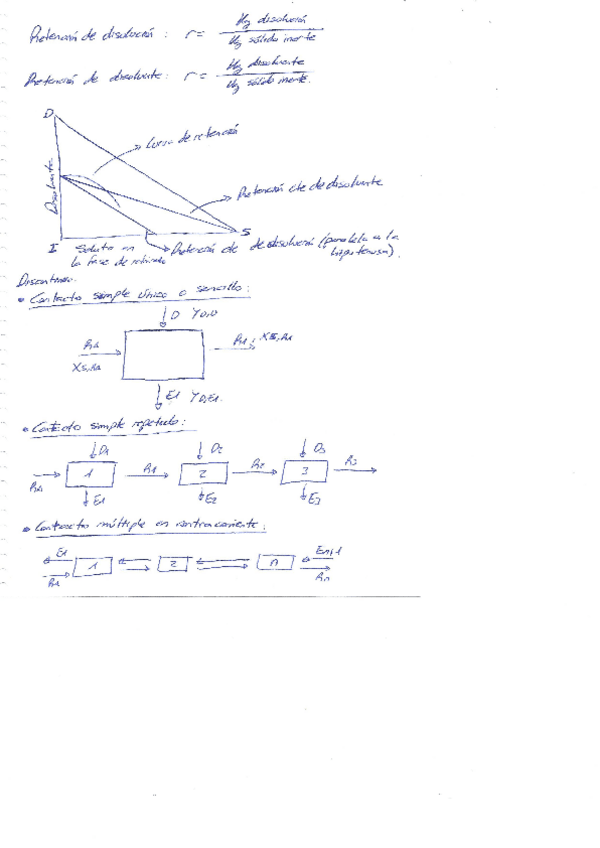 Retención de disolución: r = Kg disolución / Kg sólido inerte
Retención de disolvente: r = Kg disolvente / Kg sólido inerte.
D
Curva de retención
Disolvente
Retención cte de disolvente
S
I
Soluto en la fase de retirada
Retención cte de disolución (paralela a la hipotenusa).
Discontinuo.
• Contacto simple único o sencillo:
D YD,D
R1, XS,R1
XS,RA
E1 YD,E1.
• Contacto simple repetido:
D1 D2 D3
1 R1 2 R2 3 R3
E1 E2 E3
• Contacto múltiple en contracorriente:
E1 En+1
1 2 n
Rn